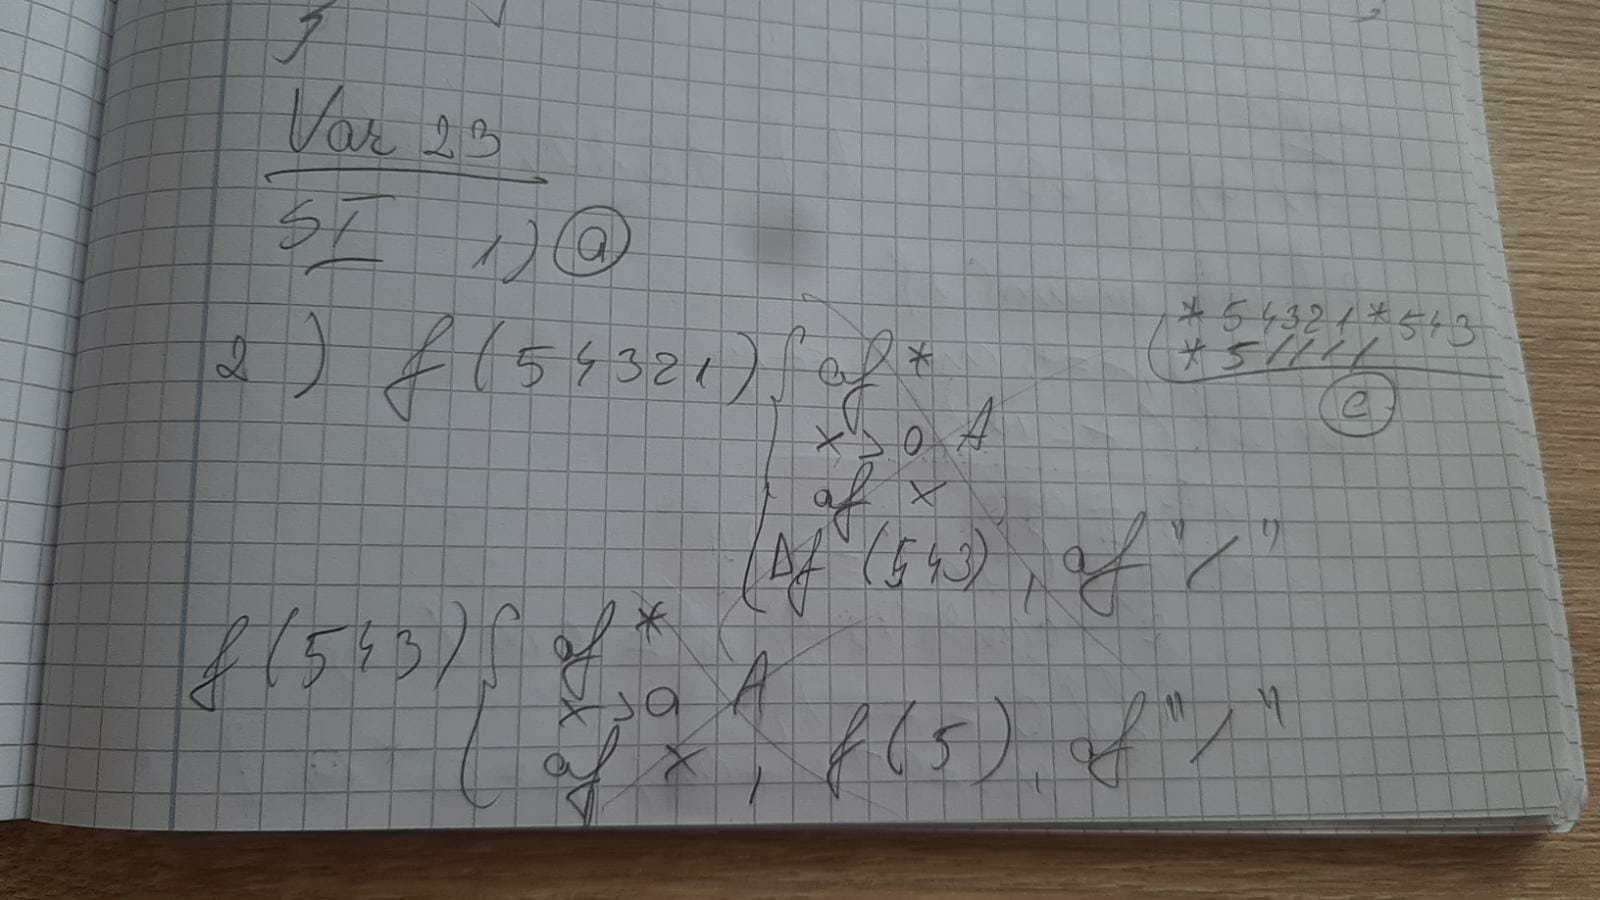 Var 23
SI 1) a
2) f(54321) { af *
x > 0 A
af x
Af (543), af "/"
*54321*543
*5/////
c
f(543) { af *
x > 0 A
af x, f(5), af "/"